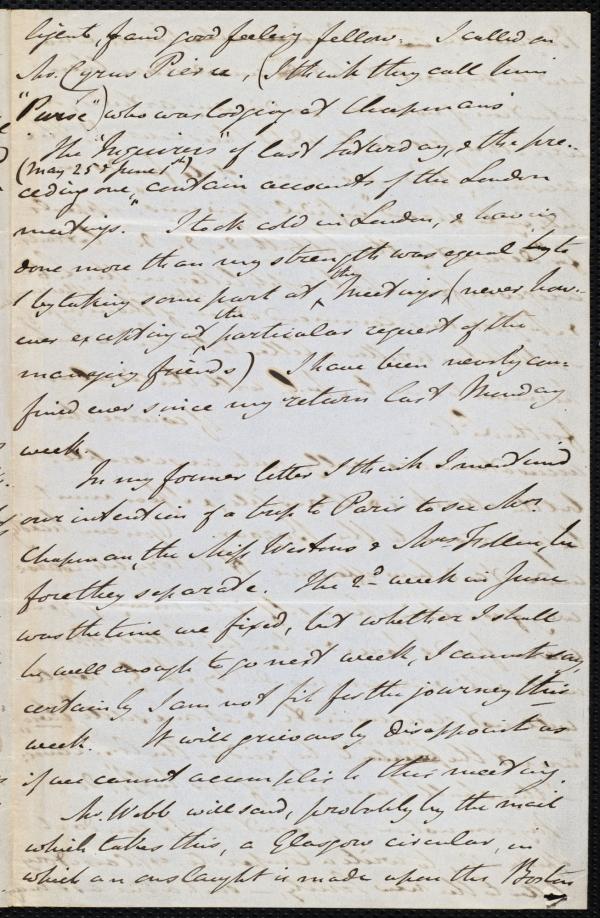 ligent, & and good feeling fellow. I called on
Mr. Cyrus Pierce, (I think they call him
"Purse") who was lodging at Chapman's
The "Inquirers" of last Saturday, & the pre-
(May 25 & June 1st)
ceding one, contain accounts of the London
meetings." I took cold in London, & having
done more than my strength was equal to
by taking some part at the meetings (never how-
ever excepting at the particular request of the
managing friends) I have been nearly con-
fined ever since my return last Monday
week.
In my former letter I think I mention'd
our intention of a trip to Paris to see Mrs.
Chapman, the Miss Westons & Mrs Follen, be
fore they separate. The 2d week in June
was the time we fixed, but whether I shall
be well enough to go next week, I cannot say,
certainly I am not fit for the journey this
week. It will grievously disappoint us
if we cannot accomplish this meeting.
Mr. Webb will send, probably by the mail
which takes this, a Glasgow circular, in
which an onslaught is made upon the Boston